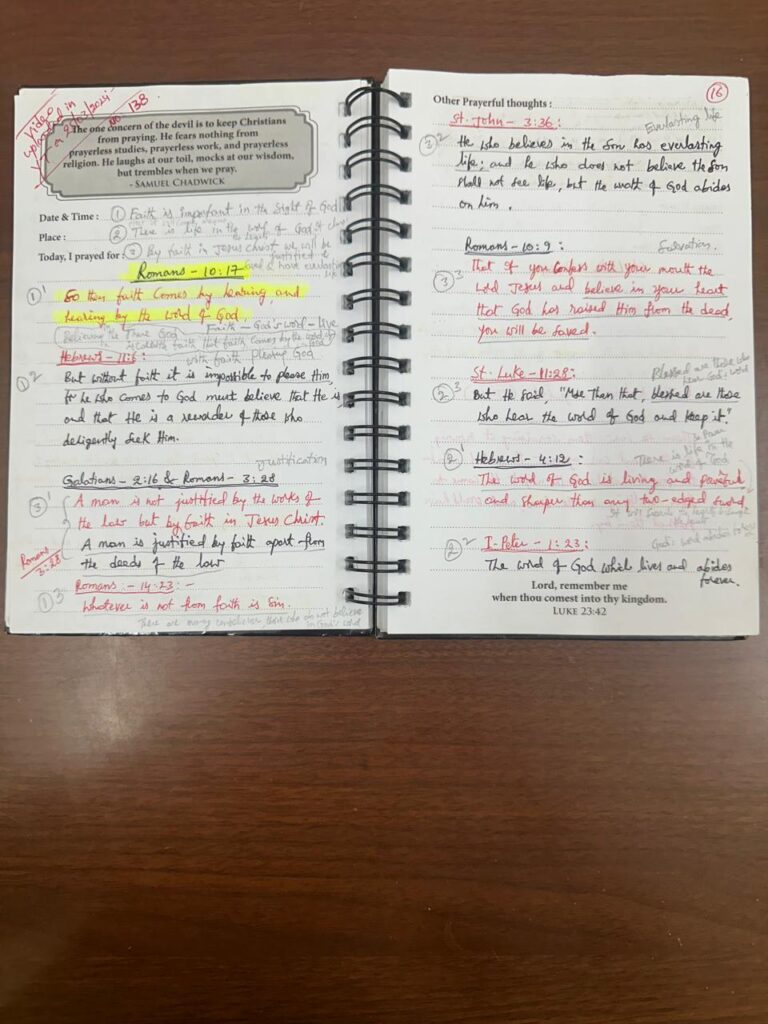 Video
uploaded in
09/03/2024
No 138
The one concern of the devil is to keep Christians
from praying. He fears nothing from
prayerless studies, prayerless work, and prayerless
religion. He laughs at our toil, mocks at our wisdom,
but trembles when we pray.
- SAMUEL CHADWICK
Date & Time : ① Faith is important in the sight of God
Place : ② There is life in the word of God
Today, I prayed for : ③ By faith in Jesus Christ we will be
justified &
Romans - 10:17
①1 So then faith comes by hearing and
hearing by the word of God.
Believing the True God
Faith - God's word - live
Hebrews - 11:6 :
with faith Pleasing God
①2 But without faith it is impossible to please Him,
for he who comes to God must believe that He is
and that He is a rewarder of those who
deligently seek Him.
Justification
Galatians - 2:16 & Romans - 3:28
③1 A man is not justified by the works of
the law but by faith in Jesus Christ.
A man is justified by faith apart from
Romans
3:28
the deeds of the law
Romans :- 14:23: -
①3 Whatever is not from faith is Sin.
There are many who do not believe
in God's word
16
Other Prayerful thoughts :
St. John - 3:36 :
Everlasting life
③2 He who believes in the Son has everlasting
life; and he who does not believe the Son
shall not see life, but the wrath of God abides
on him.
Romans - 10:9 :
Salvation.
③3 That if you confess with your mouth the
Lord Jesus and believe in your heart
that God has raised Him from the dead,
you will be saved.
St. Luke - 11:28 :
Blessed are those who
hear God's word
②3 But He said, "More Than that, blessed are those
who hear the word of God and keep it."
& Power
There is life in the
word of God
②1 Hebrews - 4:12 :
The word of God is living and powerful
and sharper than any two-edged sword
God's word abides
②2 I-Peter - 1:23 :
The word of God which lives and abides
forever.
Lord, remember me
when thou comest into thy kingdom.
LUKE 23:42